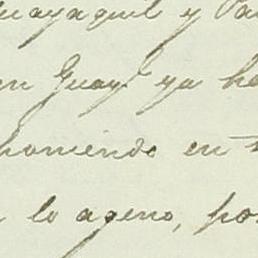 uayaquil y Pa
en Guayl ya he
poniendo en s
lo ageno, pos